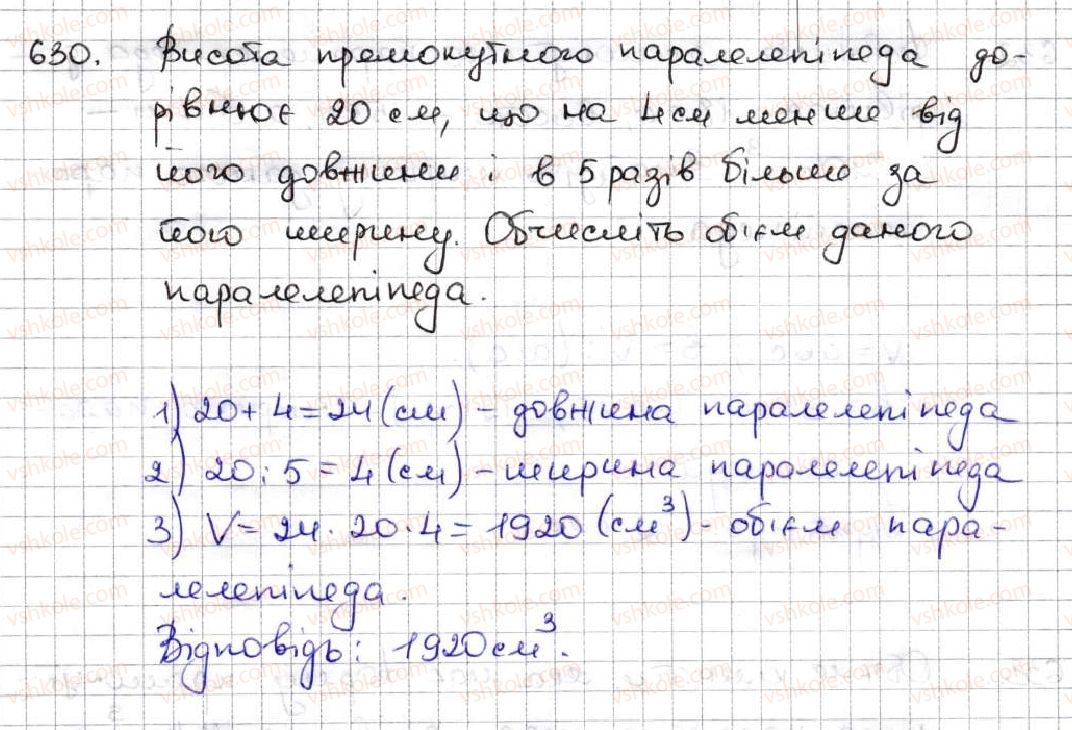 630. Висота прямокутного паралелепіпеда до-
рівнює 20 см, що на 4 см менше від
його довжини і в 5 разів більше за
його ширину. Обчисліть обієм даного
паралелепіпеда.
1) 20 + 4 = 24 (см) - довжина паралелепіпеда
2) 20 : 5 = 4 (см) - ширина паралелепіпеда
3) V = 24 · 20 · 4 = 1920 (см³) - обієм пара-
лелепіпеда.
Відповідь: 1920 см³.